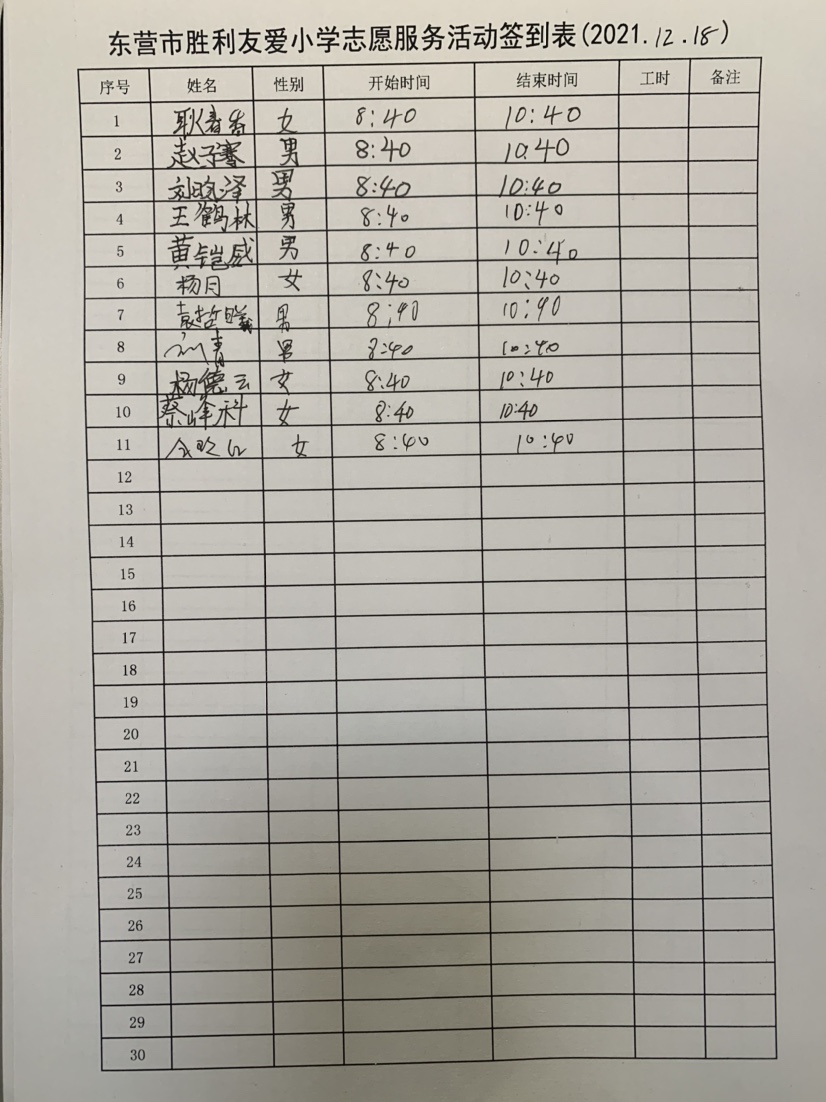 东营市胜利友爱小学志愿服务活动签到表(2021.12.18)
序号 姓名 性别 开始时间 结束时间 工时 备注
1 耿春香 女 8:40 10:40
2 赵子骞 男 8:40 10.40
3 刘晓泽 男 8:40 10:40
4 王鹤林 男 8:40 10:40
5 黄铠威 男 8:40 10:40
6 杨月 女 8:40 10:40
7 袁哲曦 男 8:40 10:40
8 刘青 男 8:40 10:40
9 杨德云 女 8:40 10:40
10 蔡峰科 女 8:40 10:40
11 女 8:40 10:40
12
13
14
15
16
17
18
19
20
21
22
23
24
25
26
27
28
29
30